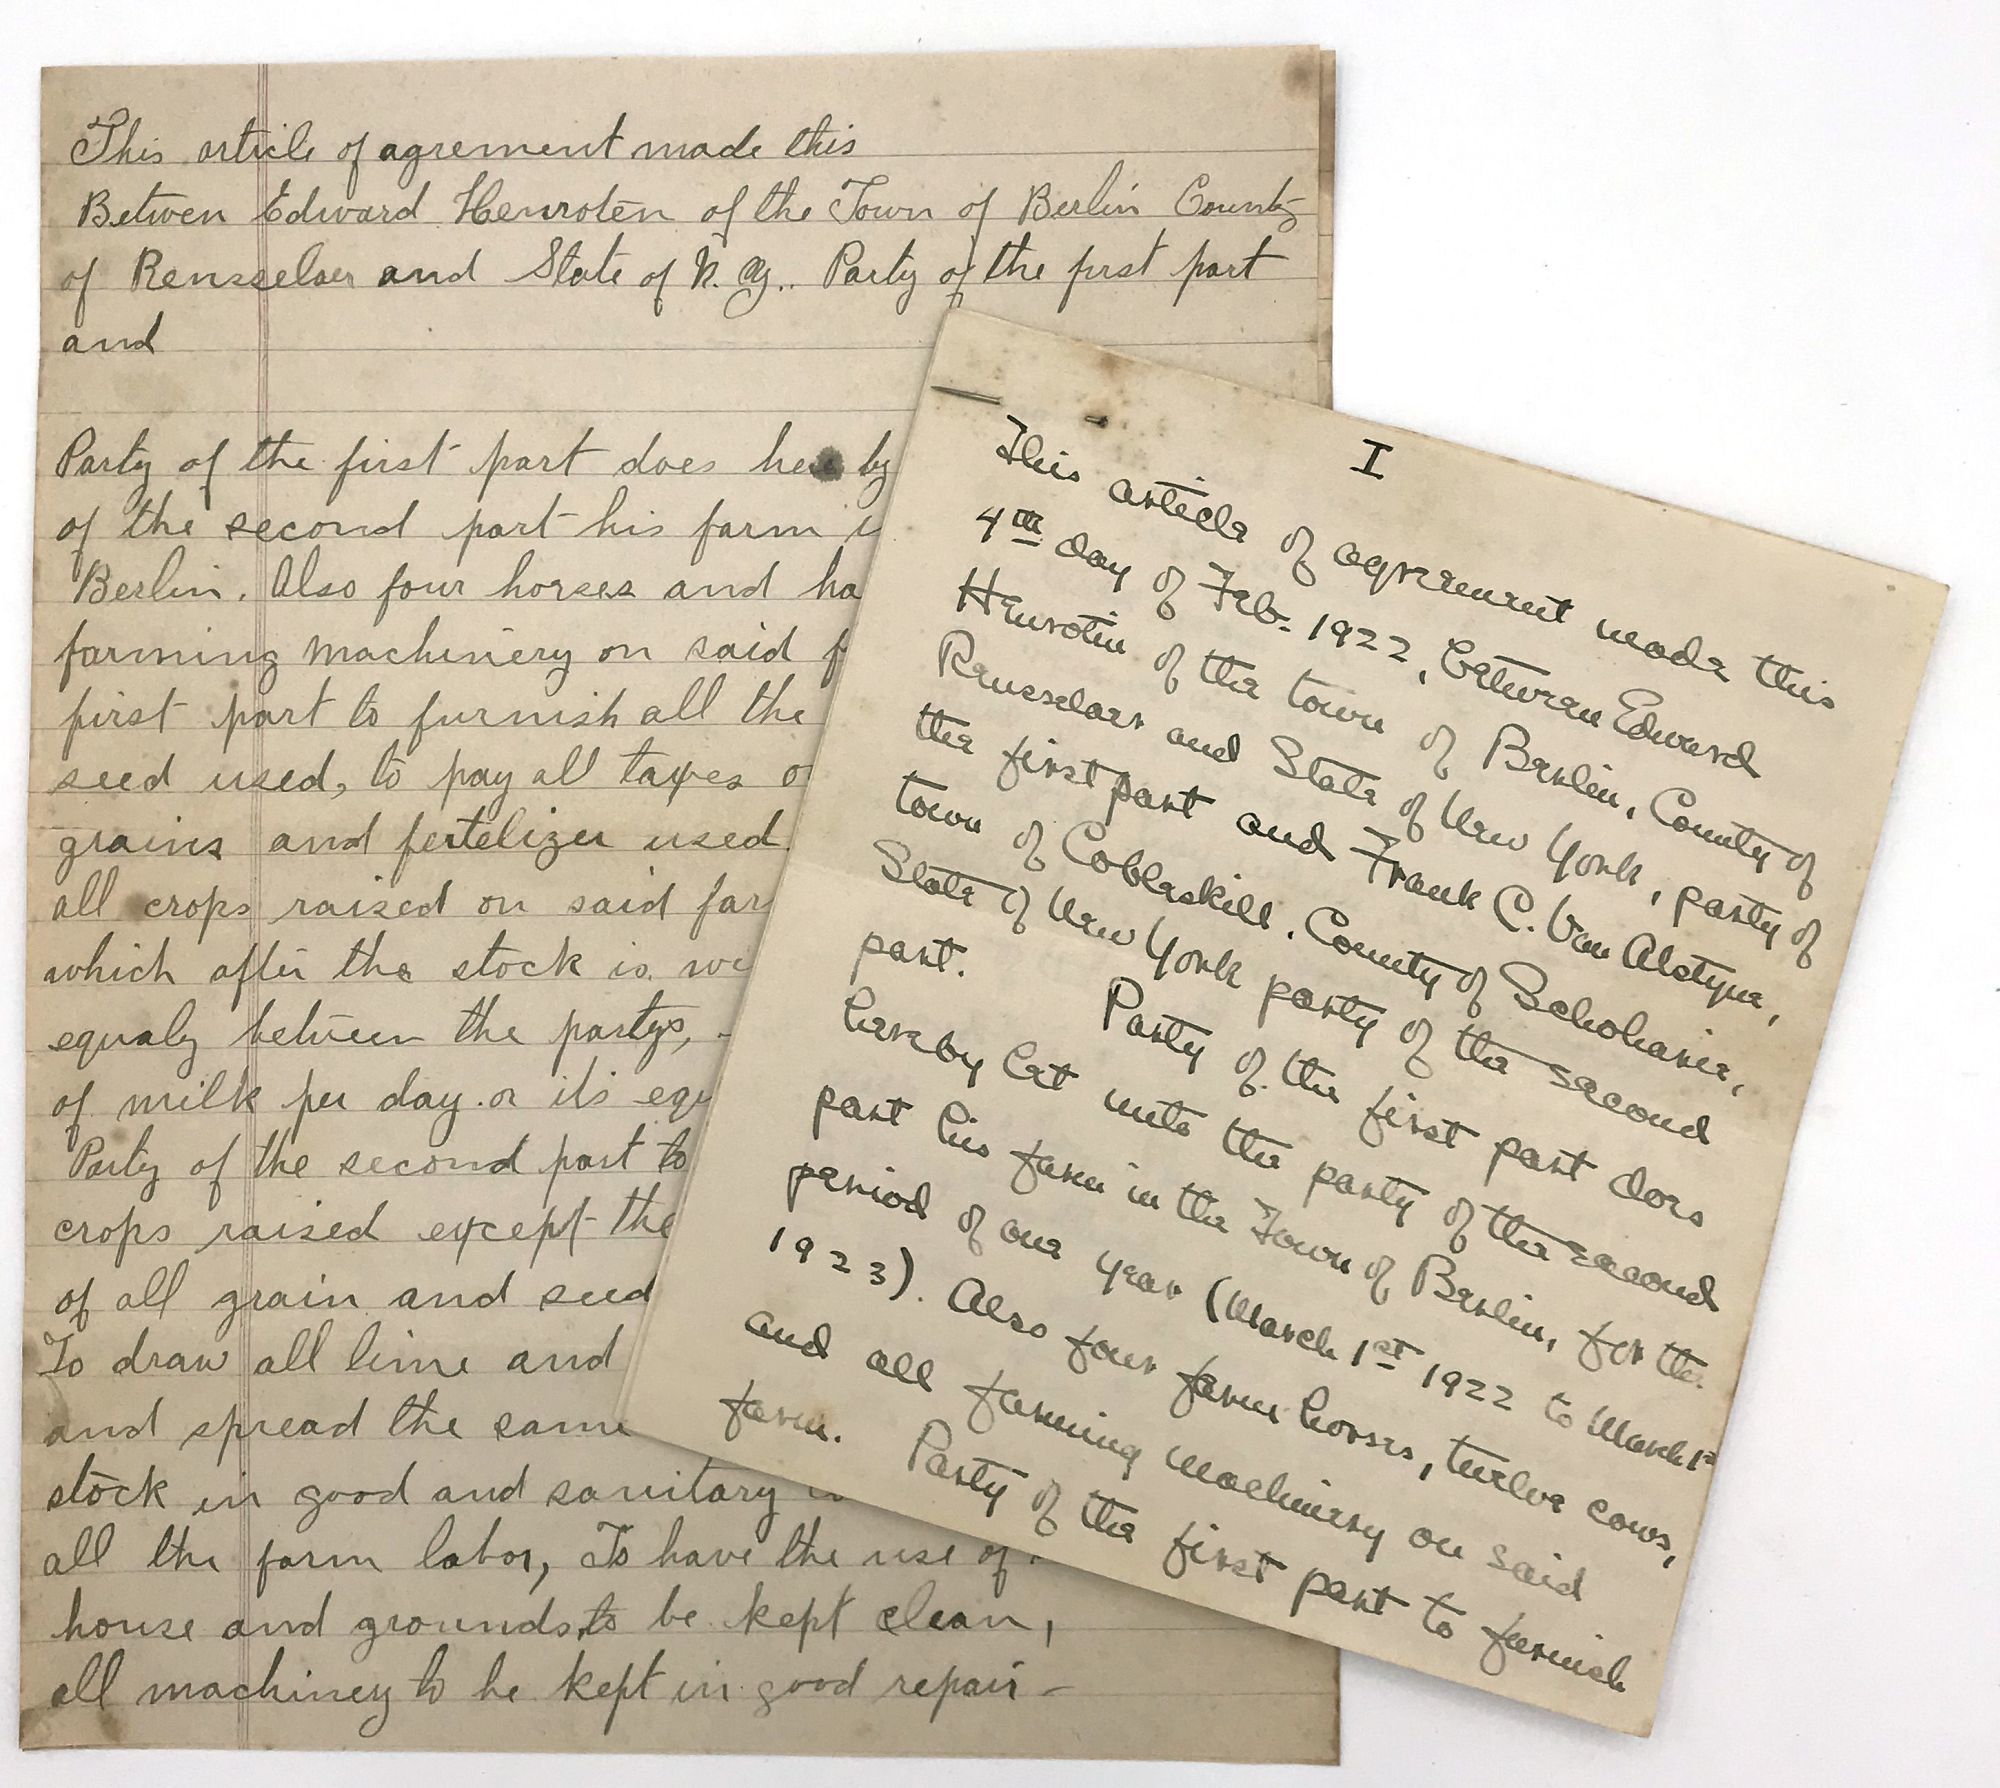 This article of agrement made this
Betwen Edward Henroten of the Town of Berlin County
of Rensselaer and State of N. Y.. Party of the first part
and
Party of the first part does here by
of the second part his farm
Berlin. Also four horses and ha
farming machinery on said f
first part to furnish all the
seed used, to pay all taxes o
grains and fertelizer used.
all crops raised on said far
which after the stock is
equaly between the partys,
of milk per day. or its equ
Party of the second part to
crops raised except the
of all grain and seed
To draw all lime and
and spread the same
stock in good and sanitary
all the farm labor, To have the use of
house and grounds, to be kept clean,
all machinery to be kept in good repair -
I
This article of agreement made this
4th day of Feb. 1922, between Edward
Henrotin of the town of Berlin, County of
Rensselaer and State of New York, party of
the first part and Frank C. Van Alstyne,
town of Cobleskill, County of Schoharie,
State of New York party of the second
part. Party of the first part does
hereby let unto the party of the second
part his farm in the Town of Berlin, for the
period of one year (March 1st 1922 to March 1st
1923). Also four farm horses, twelve cows,
and all farming machinery on said
farm. Party of the first part to furnish